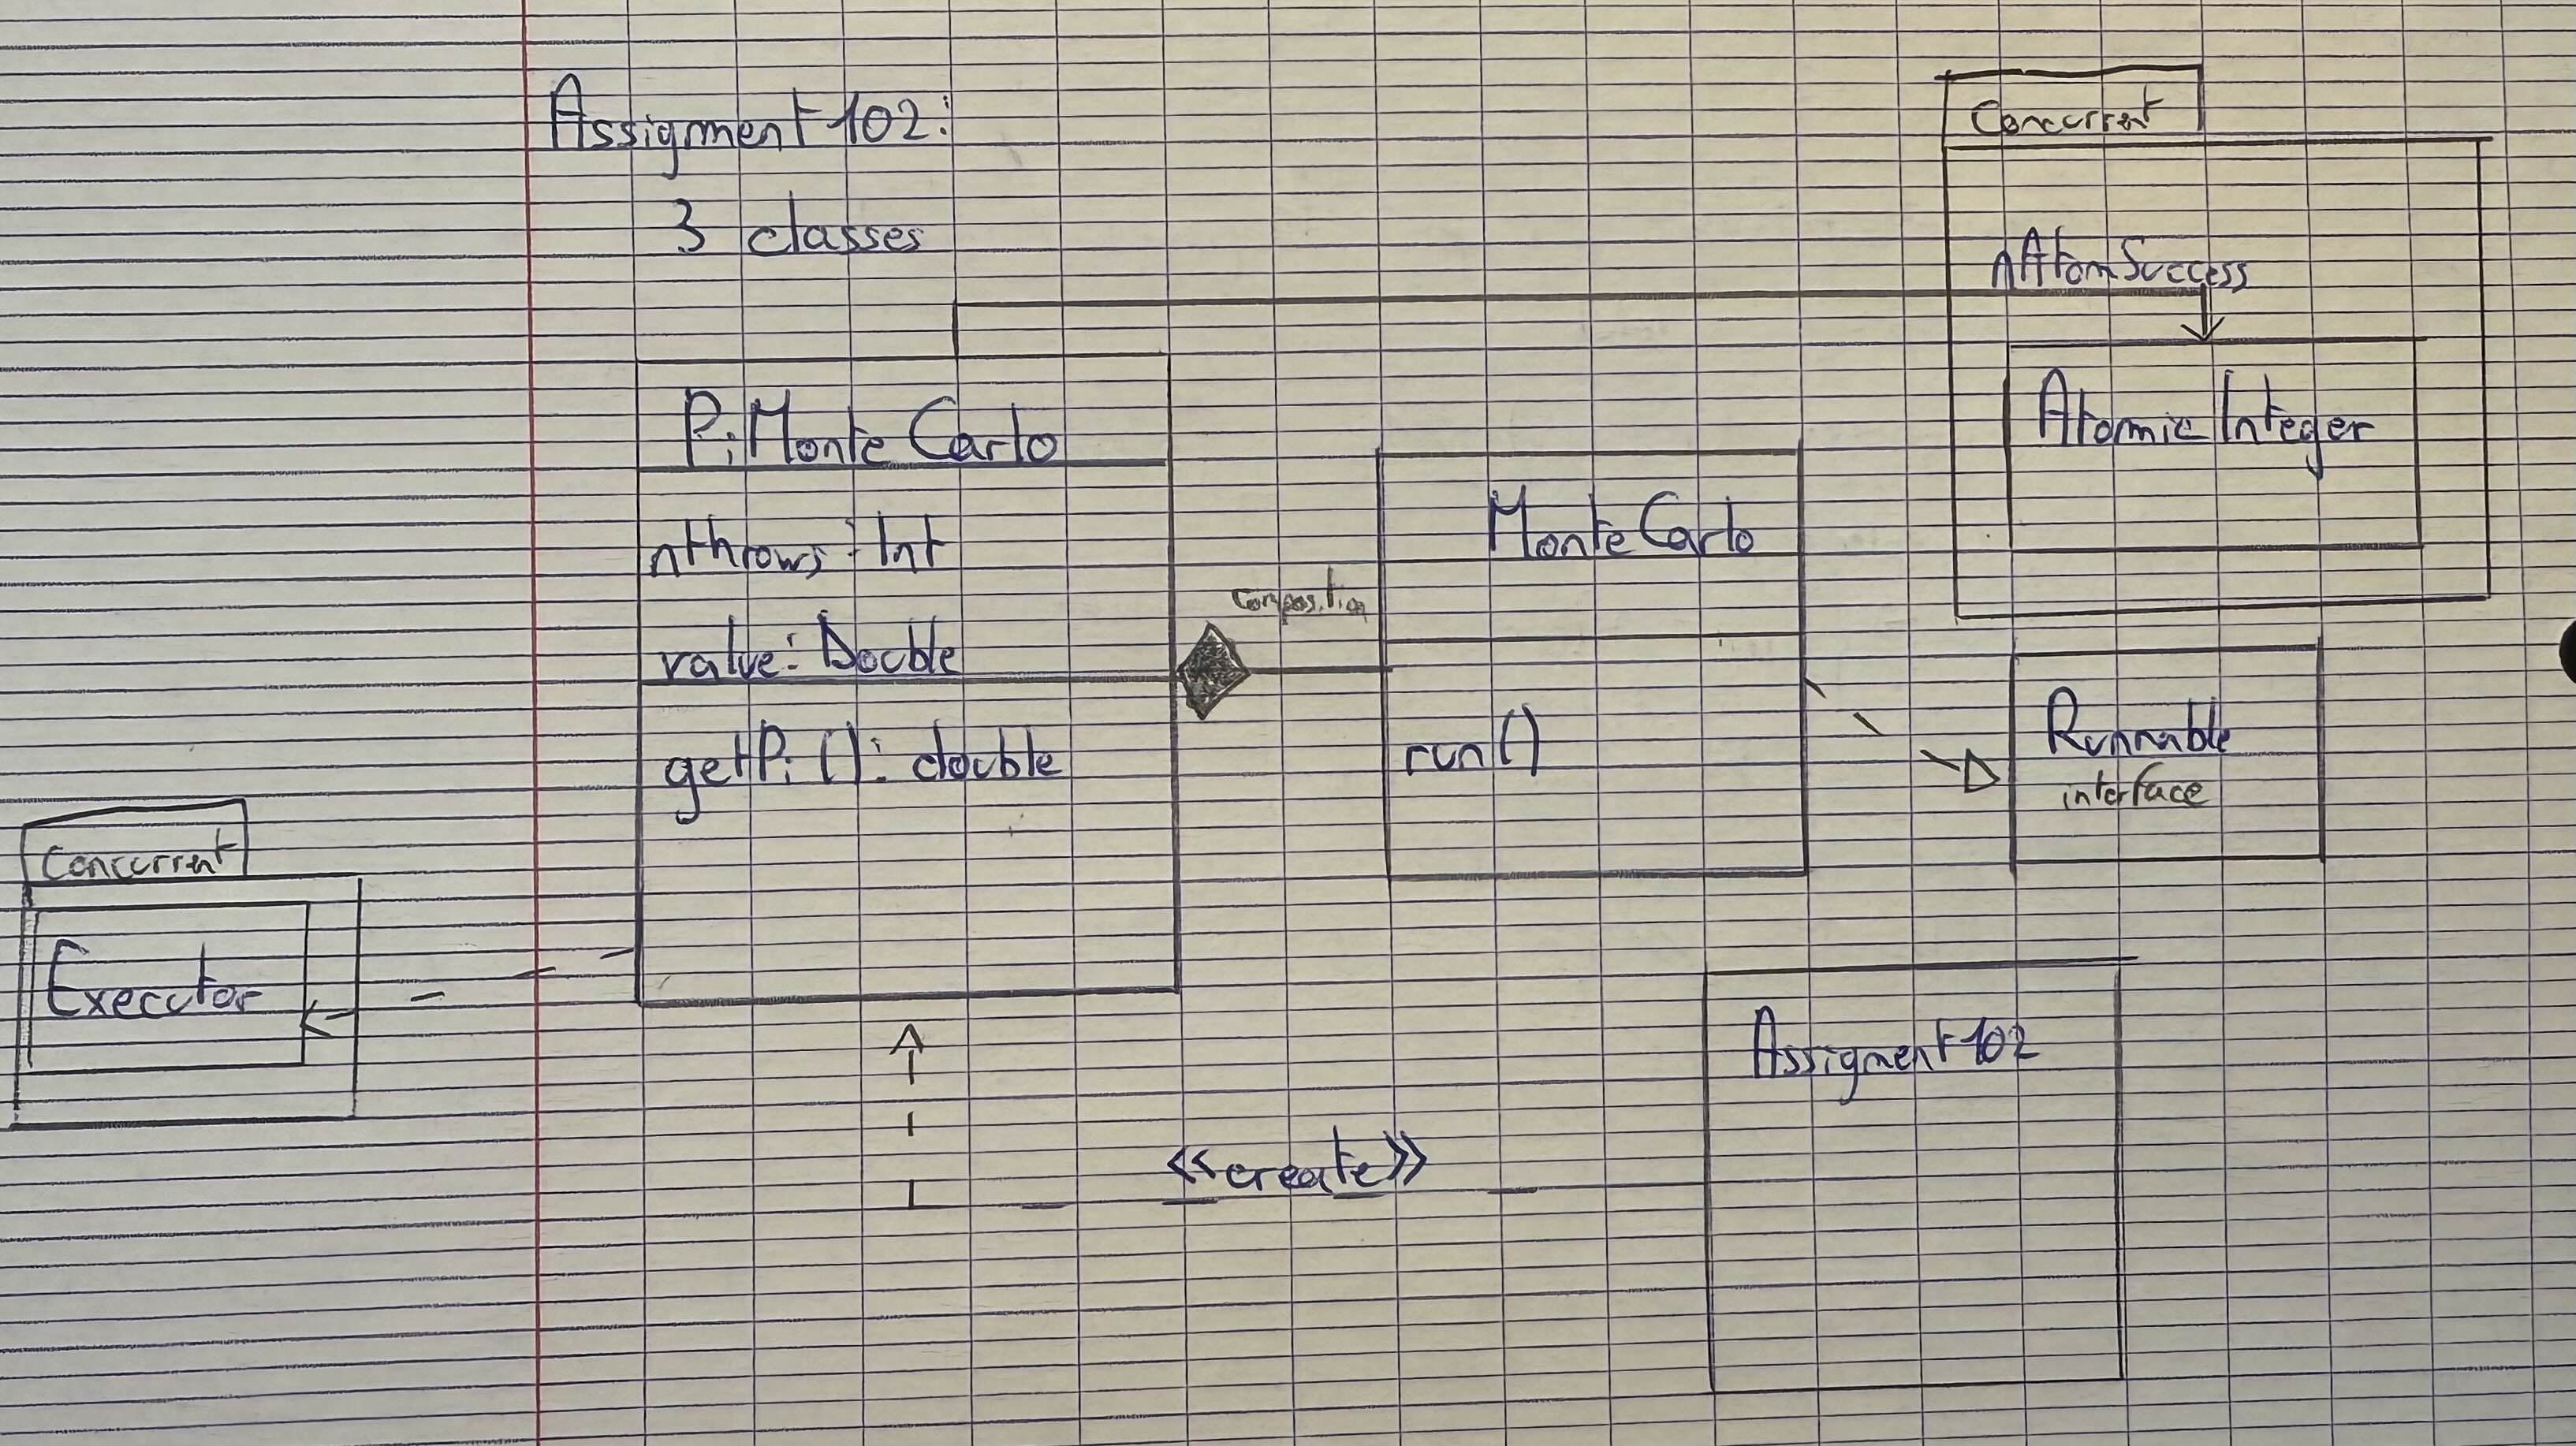 Assigment 102:
3 classes
Concurrent
nAtomSuccess
Atomic Integer
PiMonteCarlo
nthrows: Int
value: Double
getPi(): double
composition
MonteCarlo
run()
Runnable
interface
Concurrent
Executor
Assigment 102
<<create>>